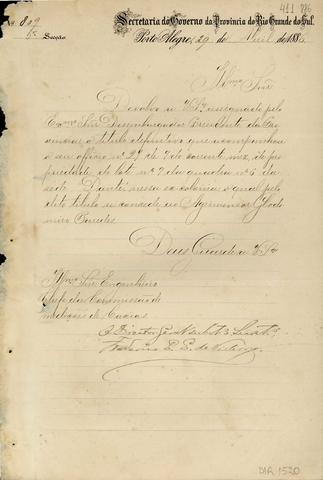 411 776
N. 809
Secretaria do Governo da Provincia do Rio Grande do Sul.
1ª Secção
Porto Alegre, 29 de Abril de 188
Illmo Snr
Devolvo a VSª assignado pelo
Exmo Snr Desembargador Presidente da Pro
vincia, o titulo definitivo que acompanhou
o seu officio nº 27 de 7 do corrente mez, de pro
priedade do lote nº 7 da quadra nº 5 da
séde Dante, nessa ex-colonia, o qual pelo
dito titulo é concedido ao Agrimensor
Paredes
Deus Guarde a VSª
Illmo Snr Engenheiro
Chefe da Commissão de
medições de Caxias
O Director Geral
de
DIR 1520